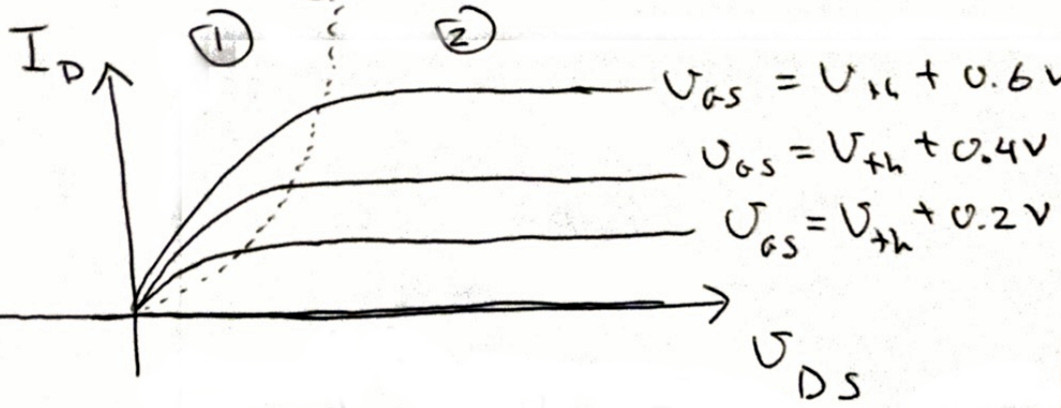 ① ②
I_D
V_GS = V_th + 0.6V
V_GS = V_th + 0.4V
V_GS = V_th + 0.2V
V_DS